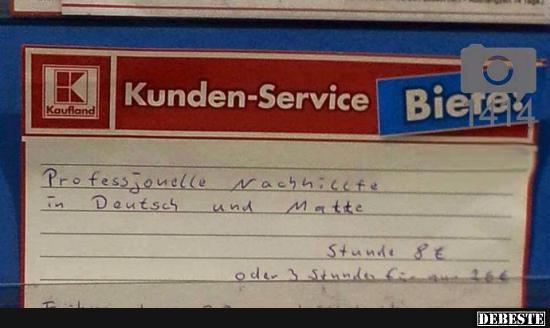 Kaufland
Kunden-Service
Biete:
1414
Professjonelle Nachhillfe
in Deutsch und Matte
Stunde 8€
oder 3 Stunden für nur 26€
DEBESTE